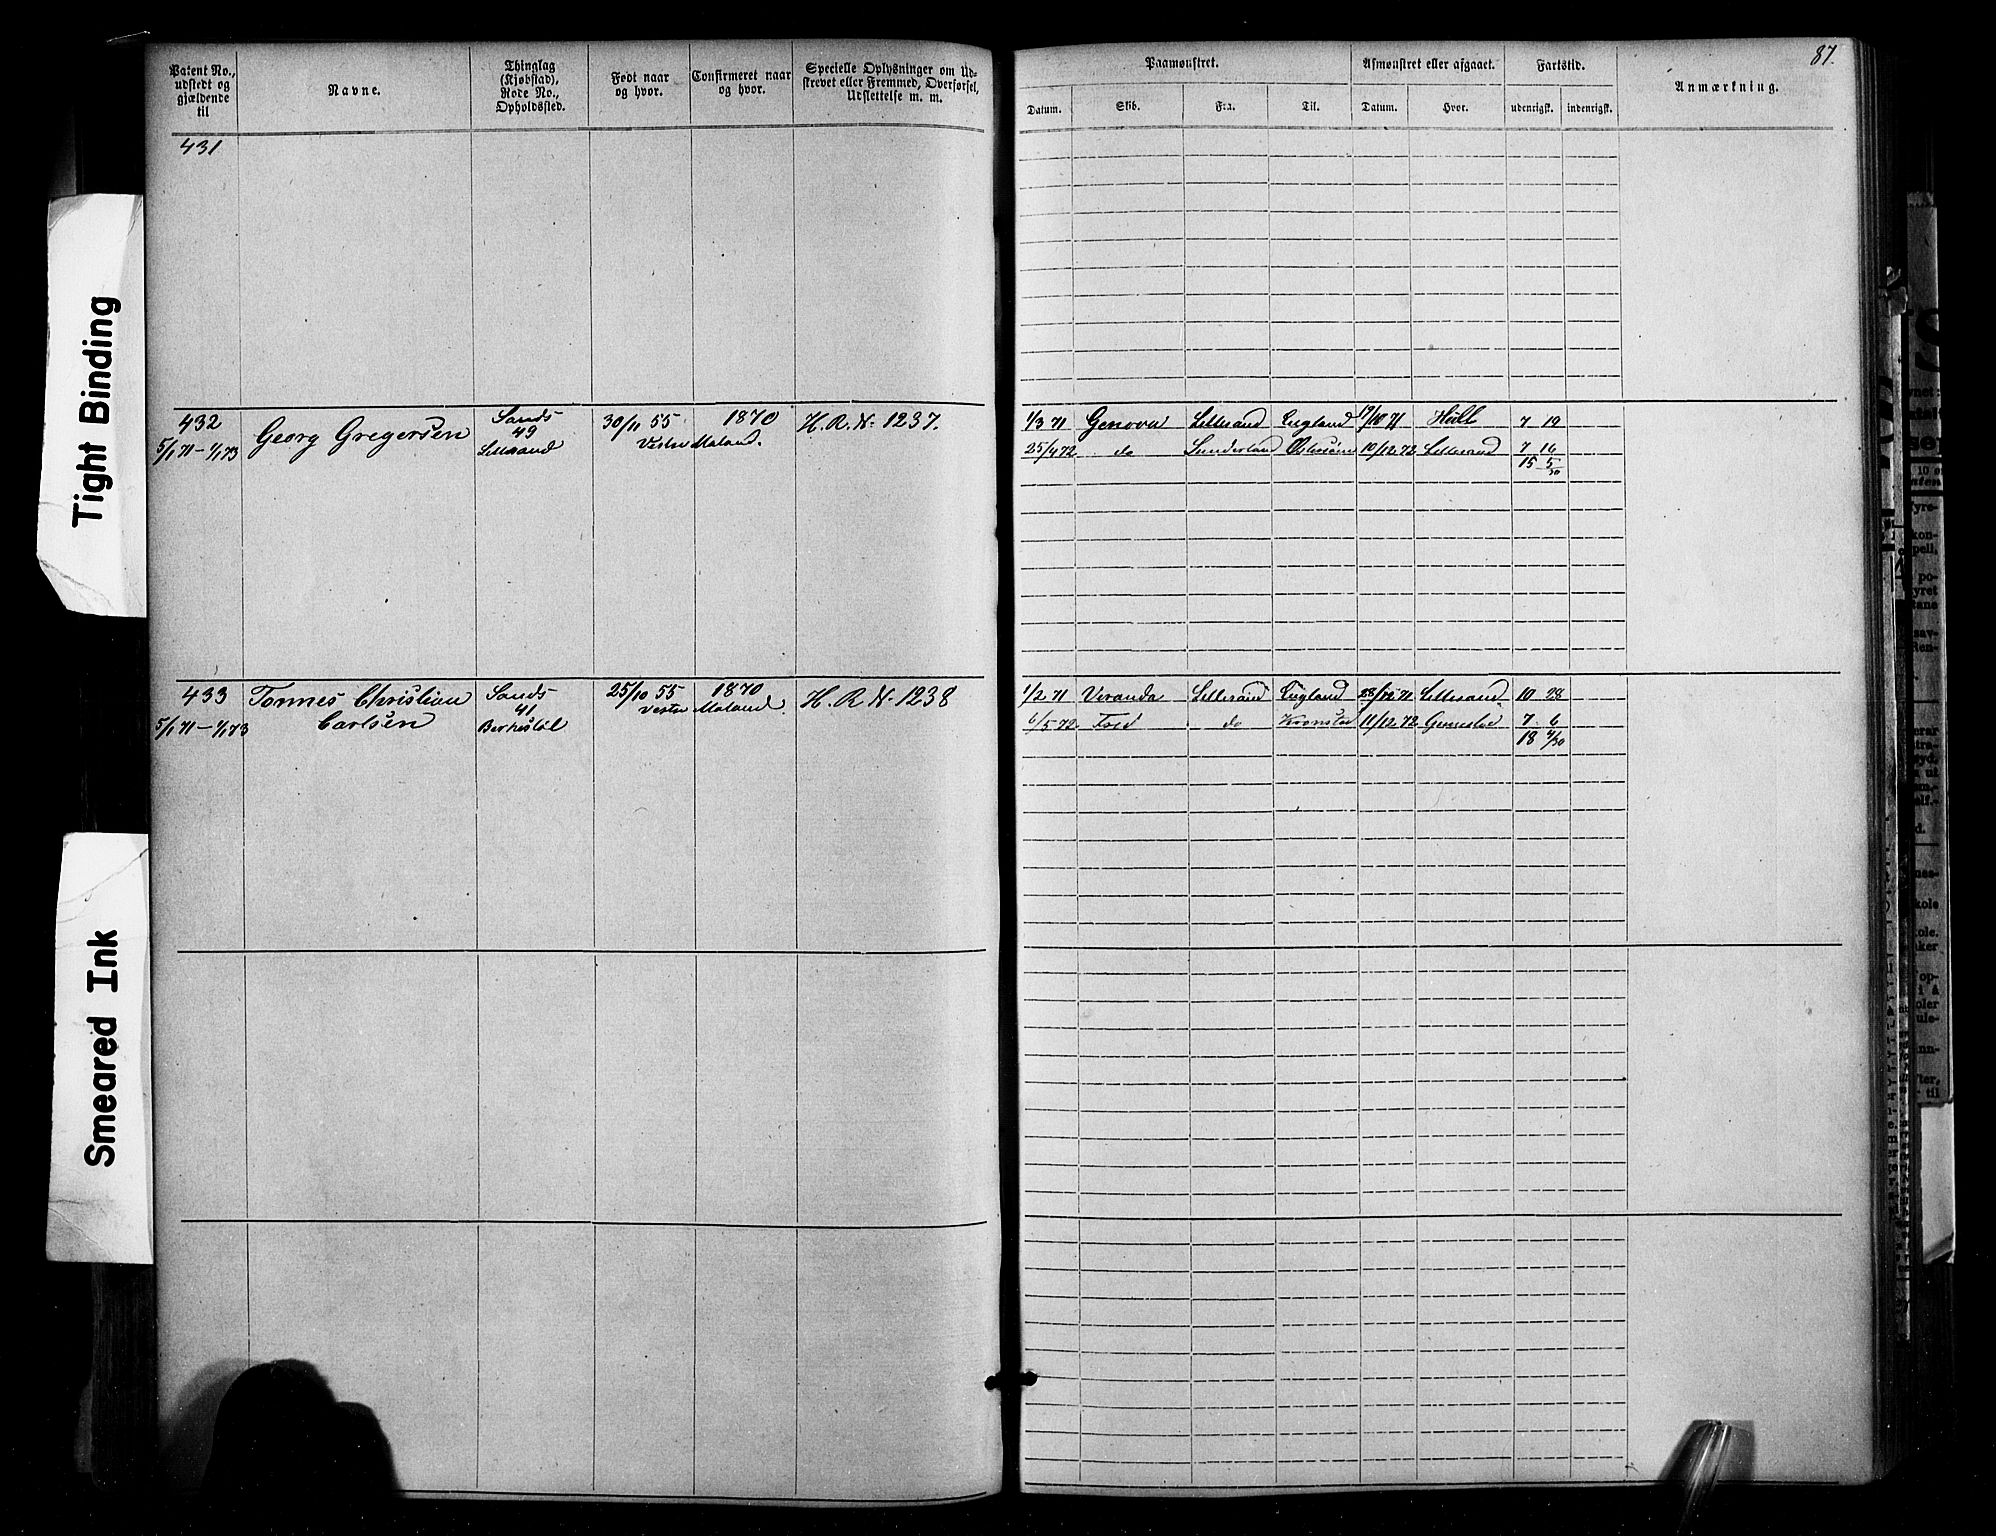 Tight Binding
Smeared Ink
Patent No., udstedt og gjældende til
Navne.
Thinglag (Kjøbstad), Rode No., Opholdssted.
Født naar og hvor.
Confirmeret naar og hvor.
Specielle Oplysninger om Udstrevet eller Fremmed, Overførsel, Udslettelse m. m.
431
432 Georg Gregersen Sands 30/11 55 1870 H. R. N. 1237.
5/1 71 – 1/1 73 49 Vestre Moland.
Lillesand
433 Tonnes Christian Sands 25/10 55 1870 H. R N. 1238
5/1 71 – 1/1 73 Carlsen 41 Vestre Moland.
87.
Paamønstret. Afmønstret eller afgaaet. Fartstid. Anmærkning.
Datum. Skib. Fra. Til. Datum. Hvor. udenrigsk. indenrigsk.
1/3 71 Genova Lillesand England 19/10 71 Hull 7 19
25/4 72 do Sunderland 10/12 72 Lillesand 7 16
15 5/30
1/2 71 Veranda Lillesand England 28/12 71 Lillesand. 10 28
6/5 72 do Kronstad 11/12 72 7 6
18 4/30